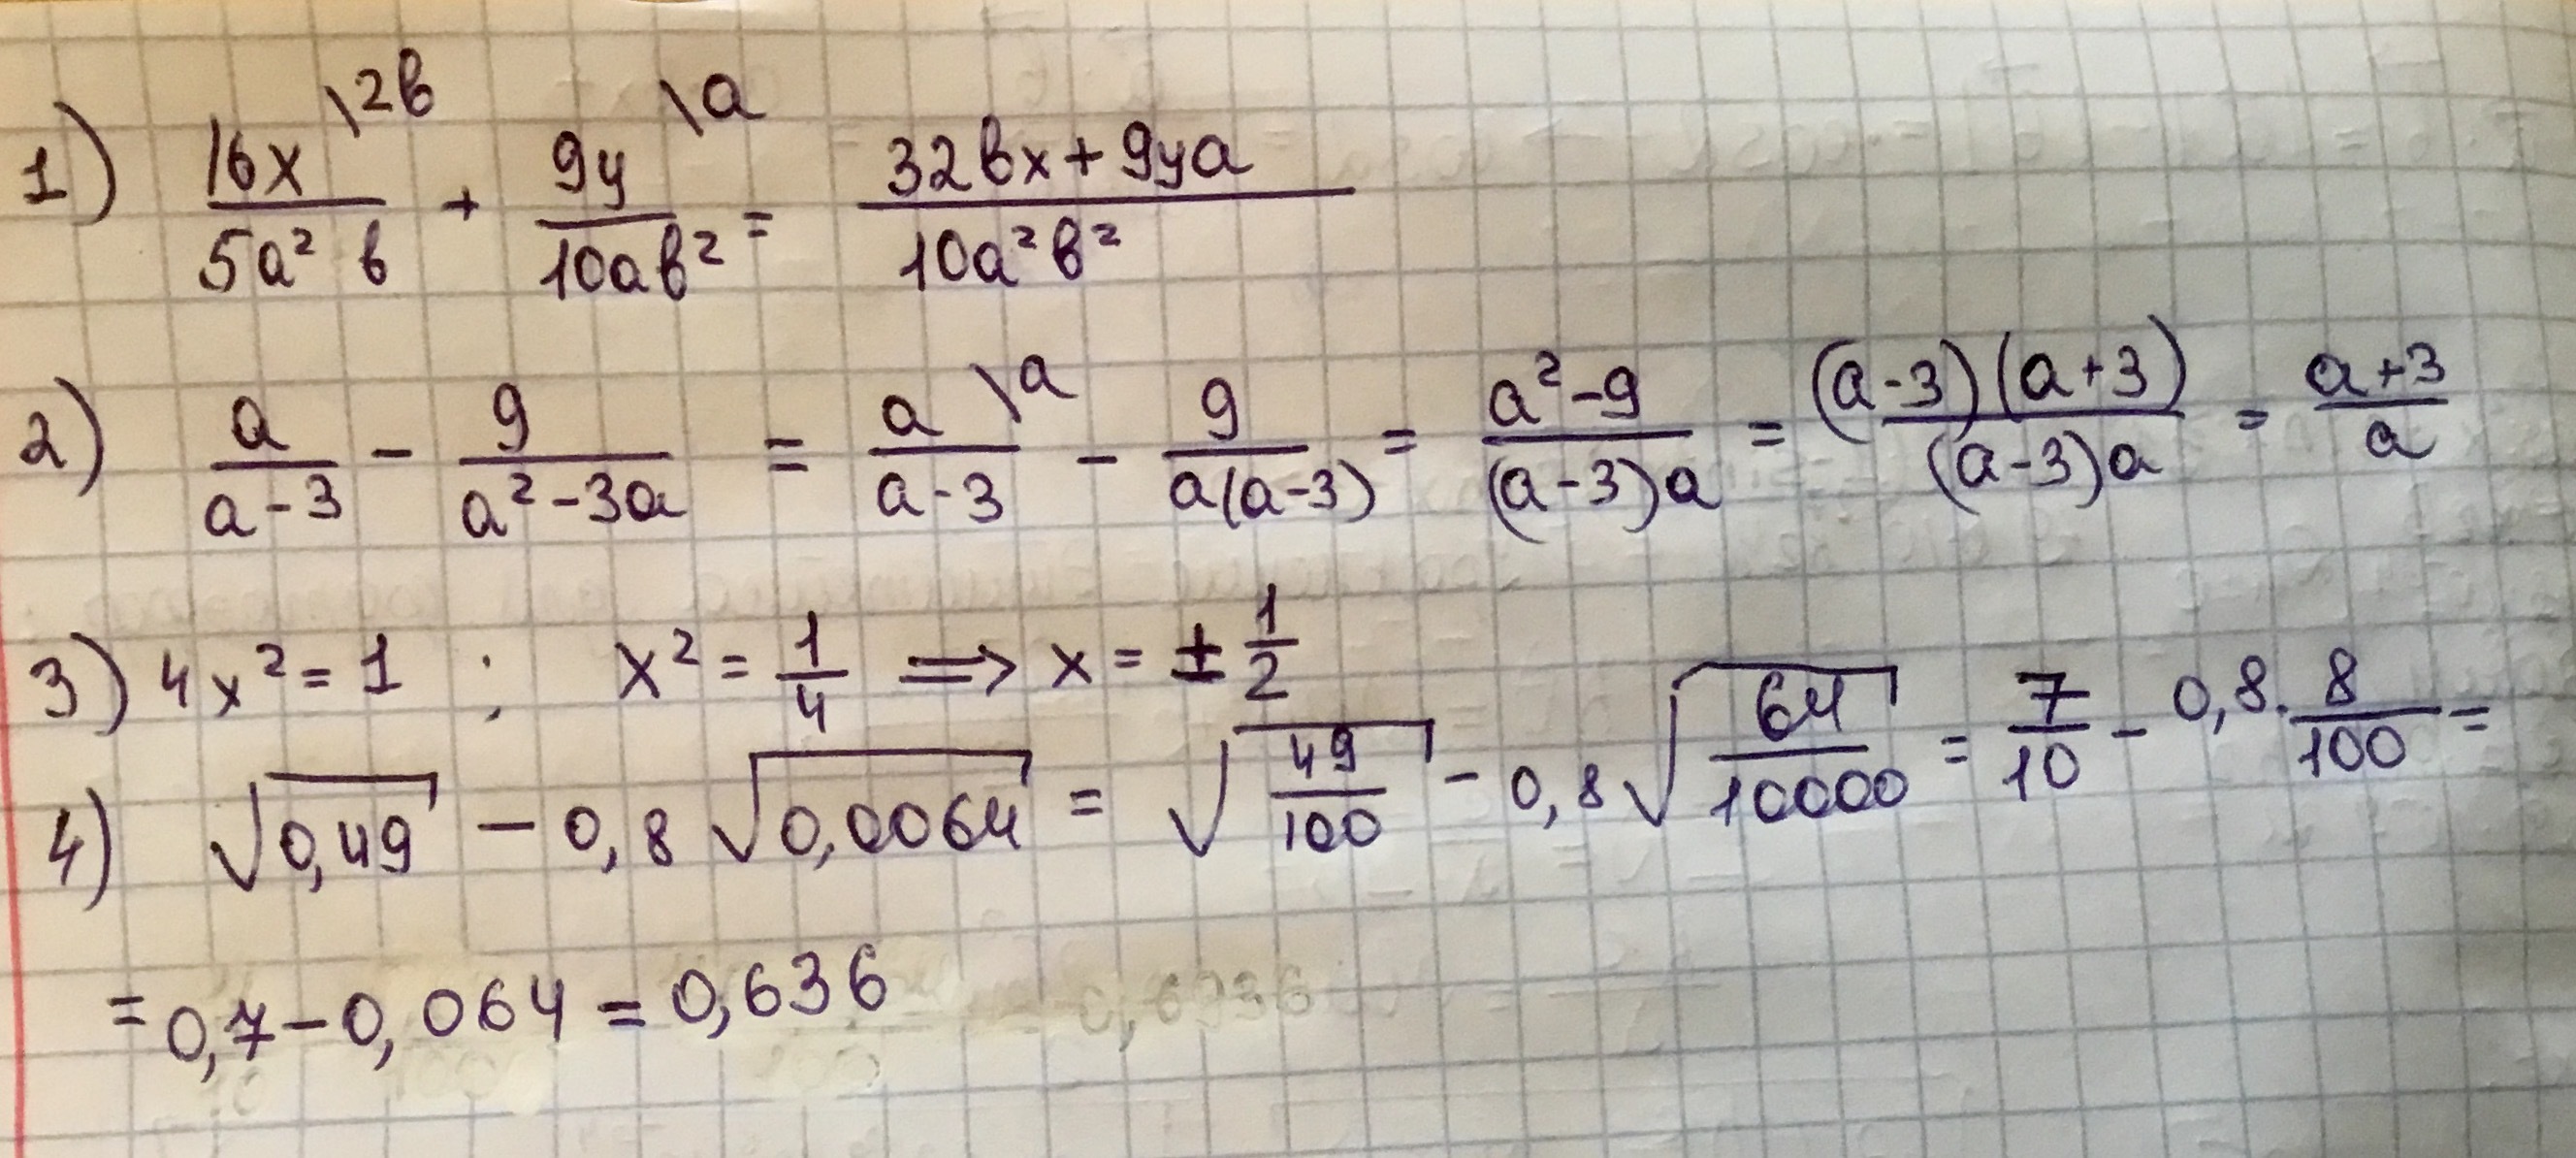 1) 16x\2b / 5a² b + 9y\a / 10ab² = 32bx+9ya / 10a²b²
2) a / a-3 - 9 / a²-3a = a\a / a-3 - 9 / a(a-3) = a²-9 / (a-3)a = (a-3)(a+3) / (a-3)a = a+3 / a
3) 4x²=1 ; x² = 1/4 ⟹ x = ± 1/2
4) √0,49 - 0,8 √0,0064 = √49/100 - 0,8 √64/10000 = 7/10 - 0,8 · 8/100 =
= 0,7-0,064 = 0,636